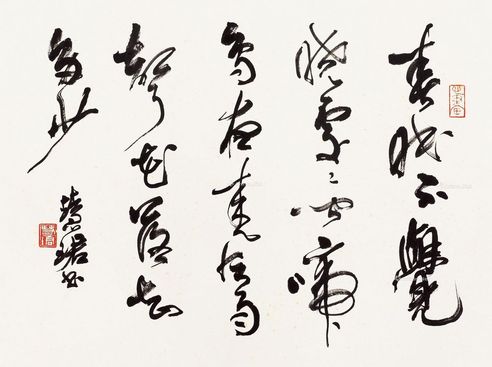 春眠不覺
曉處々聞啼
鳥夜來風雨
聲花落知
多少
慧珺书